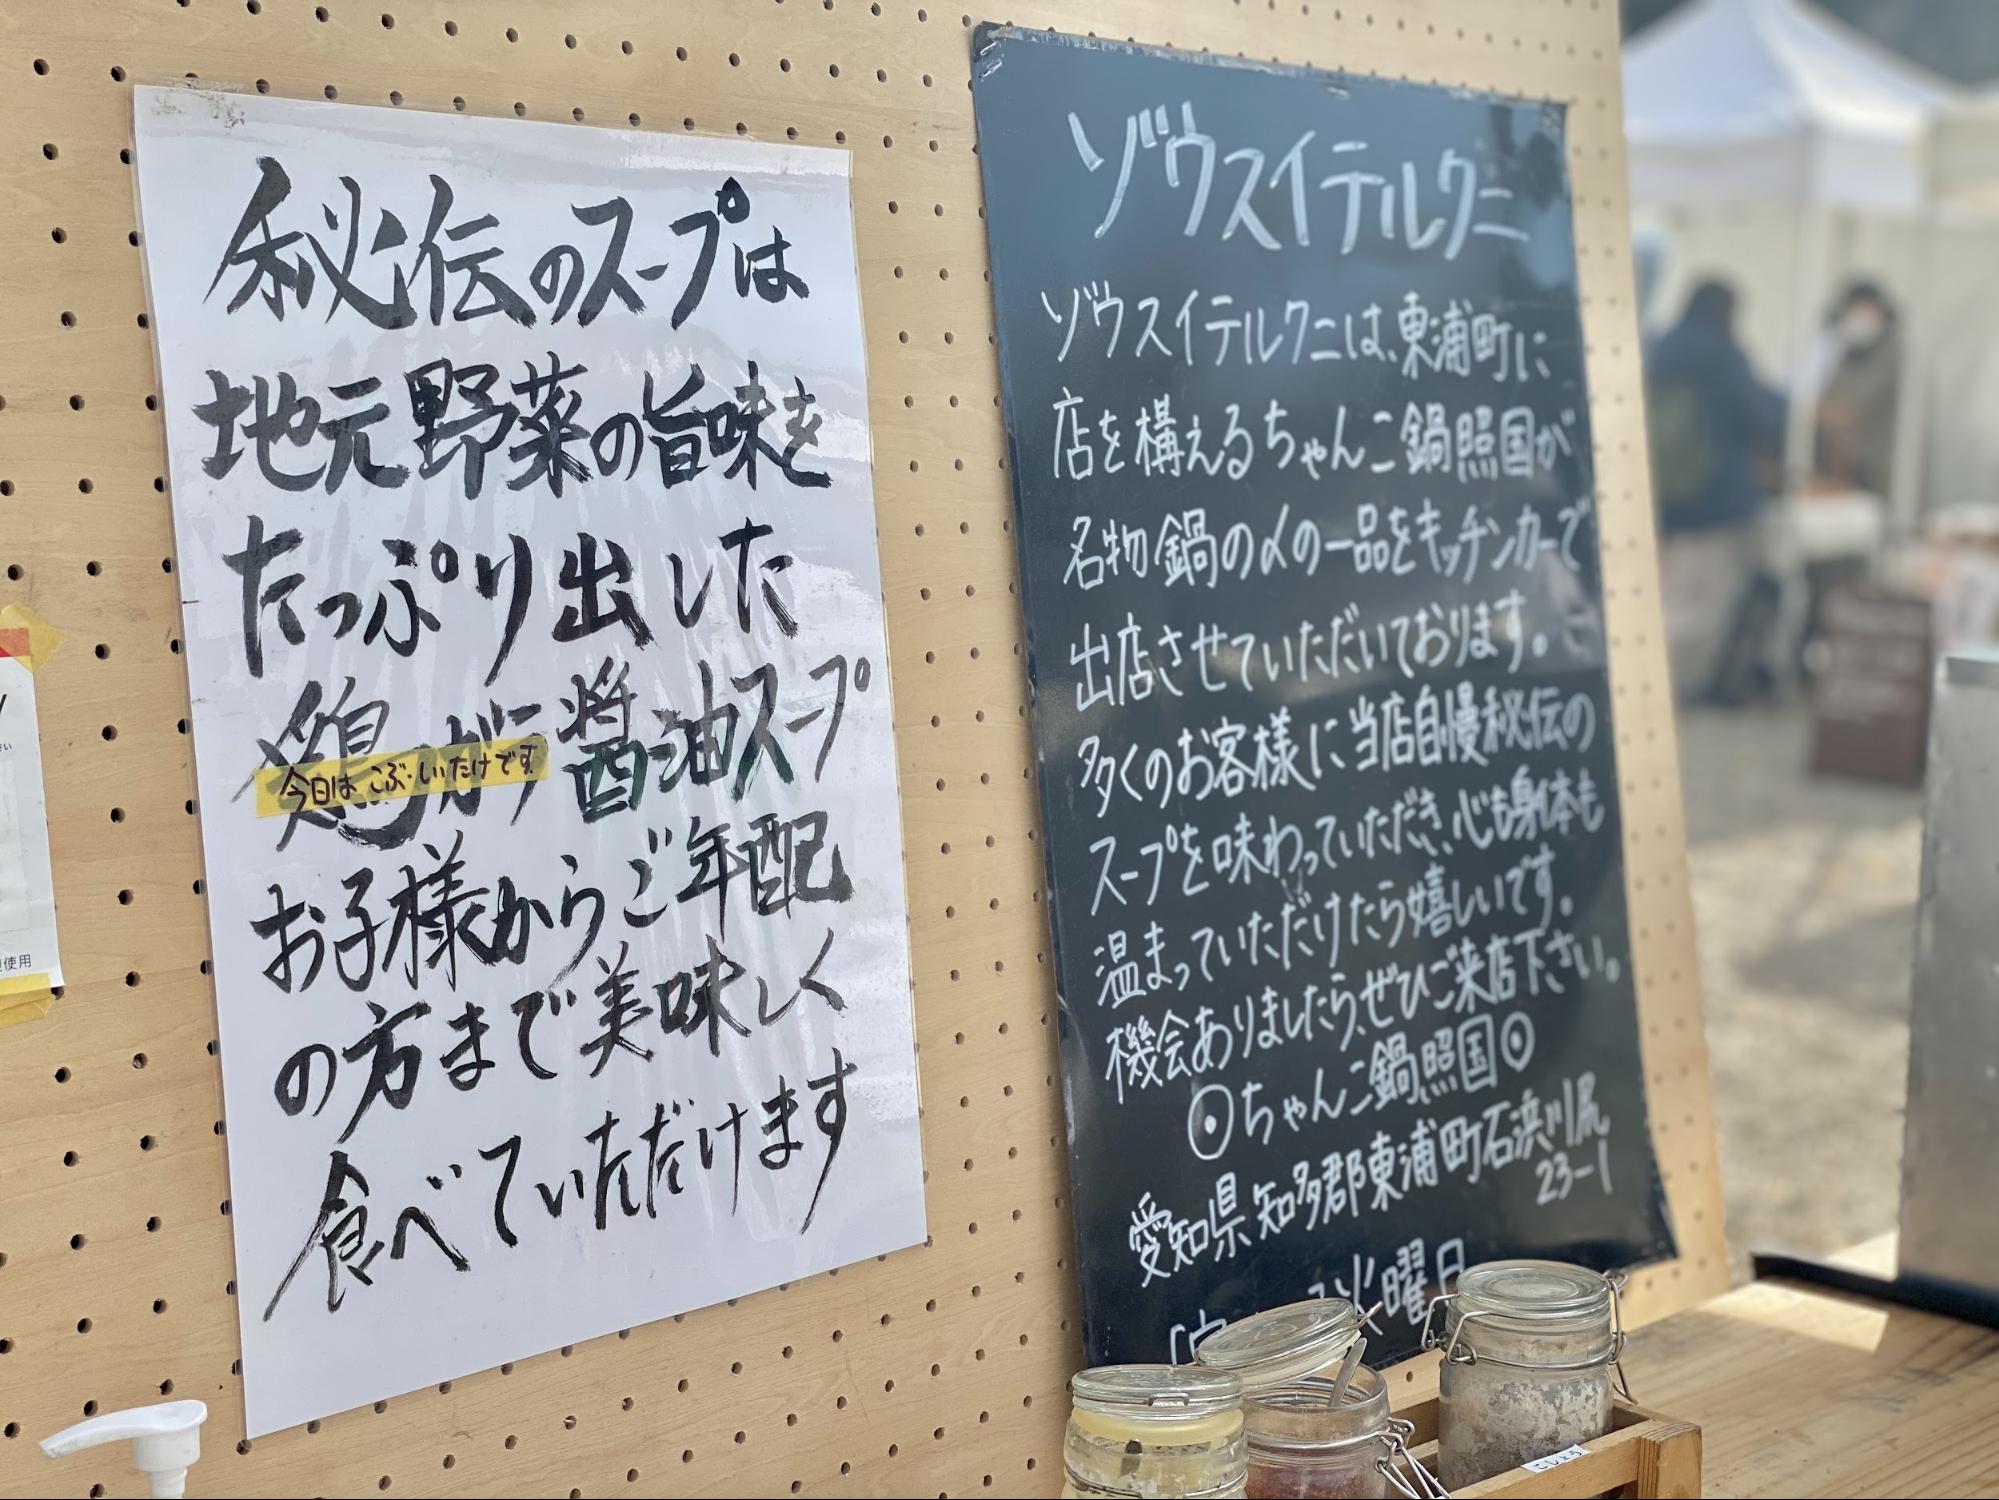 秘伝のスープは
地元野菜の旨味を
たっぷり出した
鶏ガラ醤油スープ
今日は こぶ・しいたけです
お子様からご年配
の方まで美味しく
食べていただけます
ゾウスイテルクニ
ゾウスイテルクニは、東浦町に
店を構えるちゃんこ鍋照国が
名物鍋の〆の一品をキッチンカーで
出店させていただいております。
多くのお客様に当店自慢秘伝の
スープを味わっていただき、心も身体も
温まっていただけたら嬉しいです。
機会ありましたら、ぜひご来店下さい。
⊙ちゃんこ鍋照国⊙
愛知県知多郡東浦町石浜川尻
23-1
火曜日
こしょう
使用